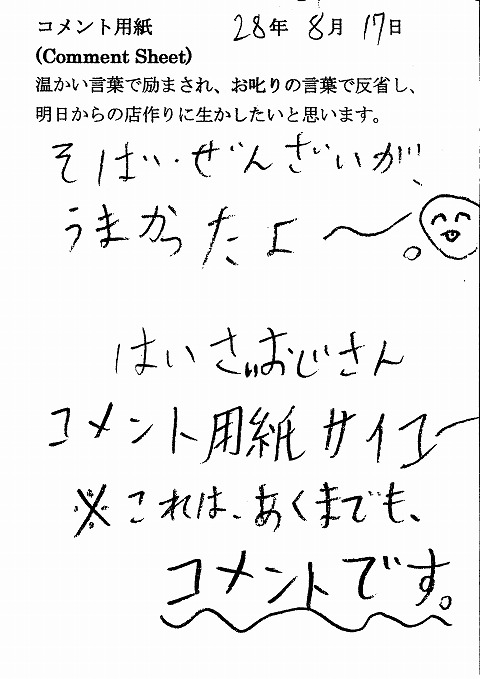 コメント用紙 28年 8月 17日
(Comment Sheet)
温かい言葉で励まされ、お叱りの言葉で反省し、
明日からの店作りに生かしたいと思います。
そばい・ぜんざいが、
うまかったよ〜。
はいさぃおじさん
コメント用紙サイコー
※これは、あくまでも、
コメントです。